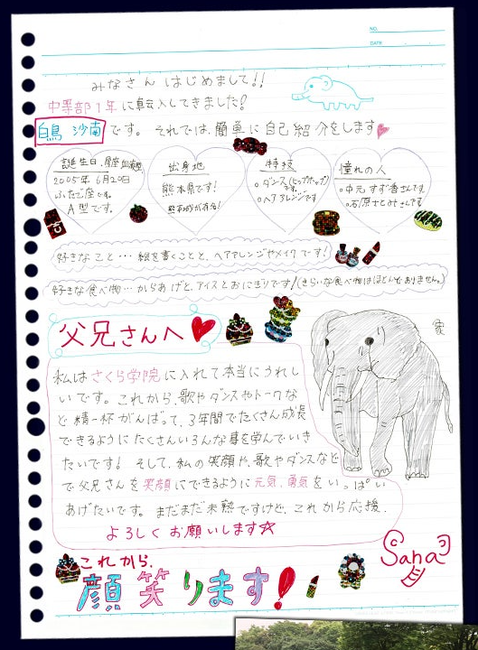 NO.
DATE
みなさん はじめまして!!
中等部1年に転入してきました!
白鳥 沙南です。それでは、簡単に自己紹介をします
誕生日、星座、血液型
2005年6月20日
ふたご座で、
A型です。
出身地
熊本県です!
熊本城が有名!
特技
ダンス(ヒップホップ)です。
ヘアアレンジです
憧れの人
中元すず香さんです。
石原さとみさんです
好きなこと…絵を書くことと、ヘアアレンジやメイクです!
好きな食べ物…からあげと、アイスとおにぎりです!(きらいな食べ物はほとんどありません。)
父兄さんへ
私はさくら学院に入れて本当にうれし
いです。これから、歌やダンスやトークな
ど精一杯がんばって、3年間でたくさん成長
できるようにたくさんいろんな事を学んでいき
たいです! そして、私の笑顔や、歌やダンスなど
で父兄さんを笑顔にできるように元気、勇気をいっぱい
あげたいです。まだまだ未熟ですけど、これから応援、
よろしくお願いします☆
Sana
これから、
顔笑ります!